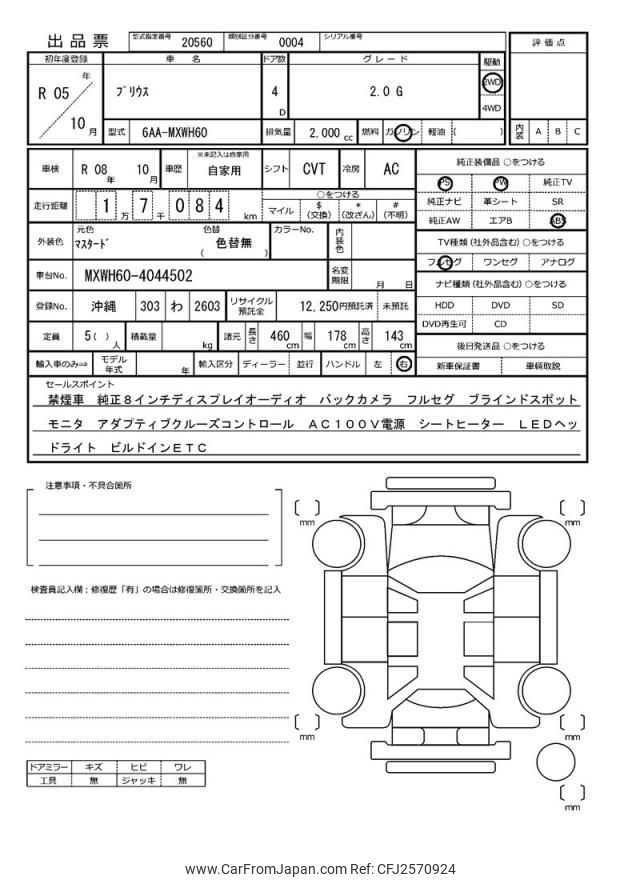 出品票 型式指定番号 20560 類別区分番号 0004 シリアル番号
評価点
初年度登録 車名 ドア数 グレード 駆動
R 05 年 10 月 プリウス 4 D 2.0 G 2WD 4WD
型式 6AA-MXWH60 排気量 2,000 cc 燃料 ガソリン 軽油 ( )
内装 A B C
車検 R 08 年 10 月 車歴 ※未記入は自家用 自家用 シフト CVT 冷房 AC
純正装備品 ○をつける
PS PW 純正TV
純正ナビ 革シート SR
純正AW エアB ABS
走行距離 1 万 7 千 0 8 4 km
○をつける
マイル $ (交換) * (改ざん) # (不明)
TV種類 (社外品含む) ○をつける
フルセグ ワンセグ アナログ
外装色 元色 マスタード 色替 ( 色替無 ) カラーNo. 内装色
車台No. MXWH60-4044502 名変期限 月 日
ナビ種類 (社外品含む) ○をつける
HDD DVD SD
DVD再生可 CD
登録No. 沖縄 303 わ 2603 リサイクル預託金 12,250円預託済 未預託
定員 5( ) 人 積載量 kg 諸元 長さ 460 cm 幅 178 cm 高さ 143 cm
後日発送品 ○をつける
新車保証書 車輌取説
輸入車のみ⇒ モデル年式 年 輸入区分 ディーラー 並行 ハンドル 左 右
セールスポイント
禁煙車 純正8インチディスプレイオーディオ バックカメラ フルセグ ブラインドスポット
モニタ アダプティブクルーズコントロール AC100V電源 シートヒーター LEDヘッ
ドライト ビルドインETC
注意事項・不具合箇所
検査員記入欄：修復歴「有」の場合は修復箇所・交換箇所を記入
[ ] mm
[ ] mm
[ ] mm
[ ] mm
[ ] mm
ドアミラー キズ ヒビ ワレ
工具 無 ジャッキ 無
www.CarFromJapan.com Ref: CFJ2570924